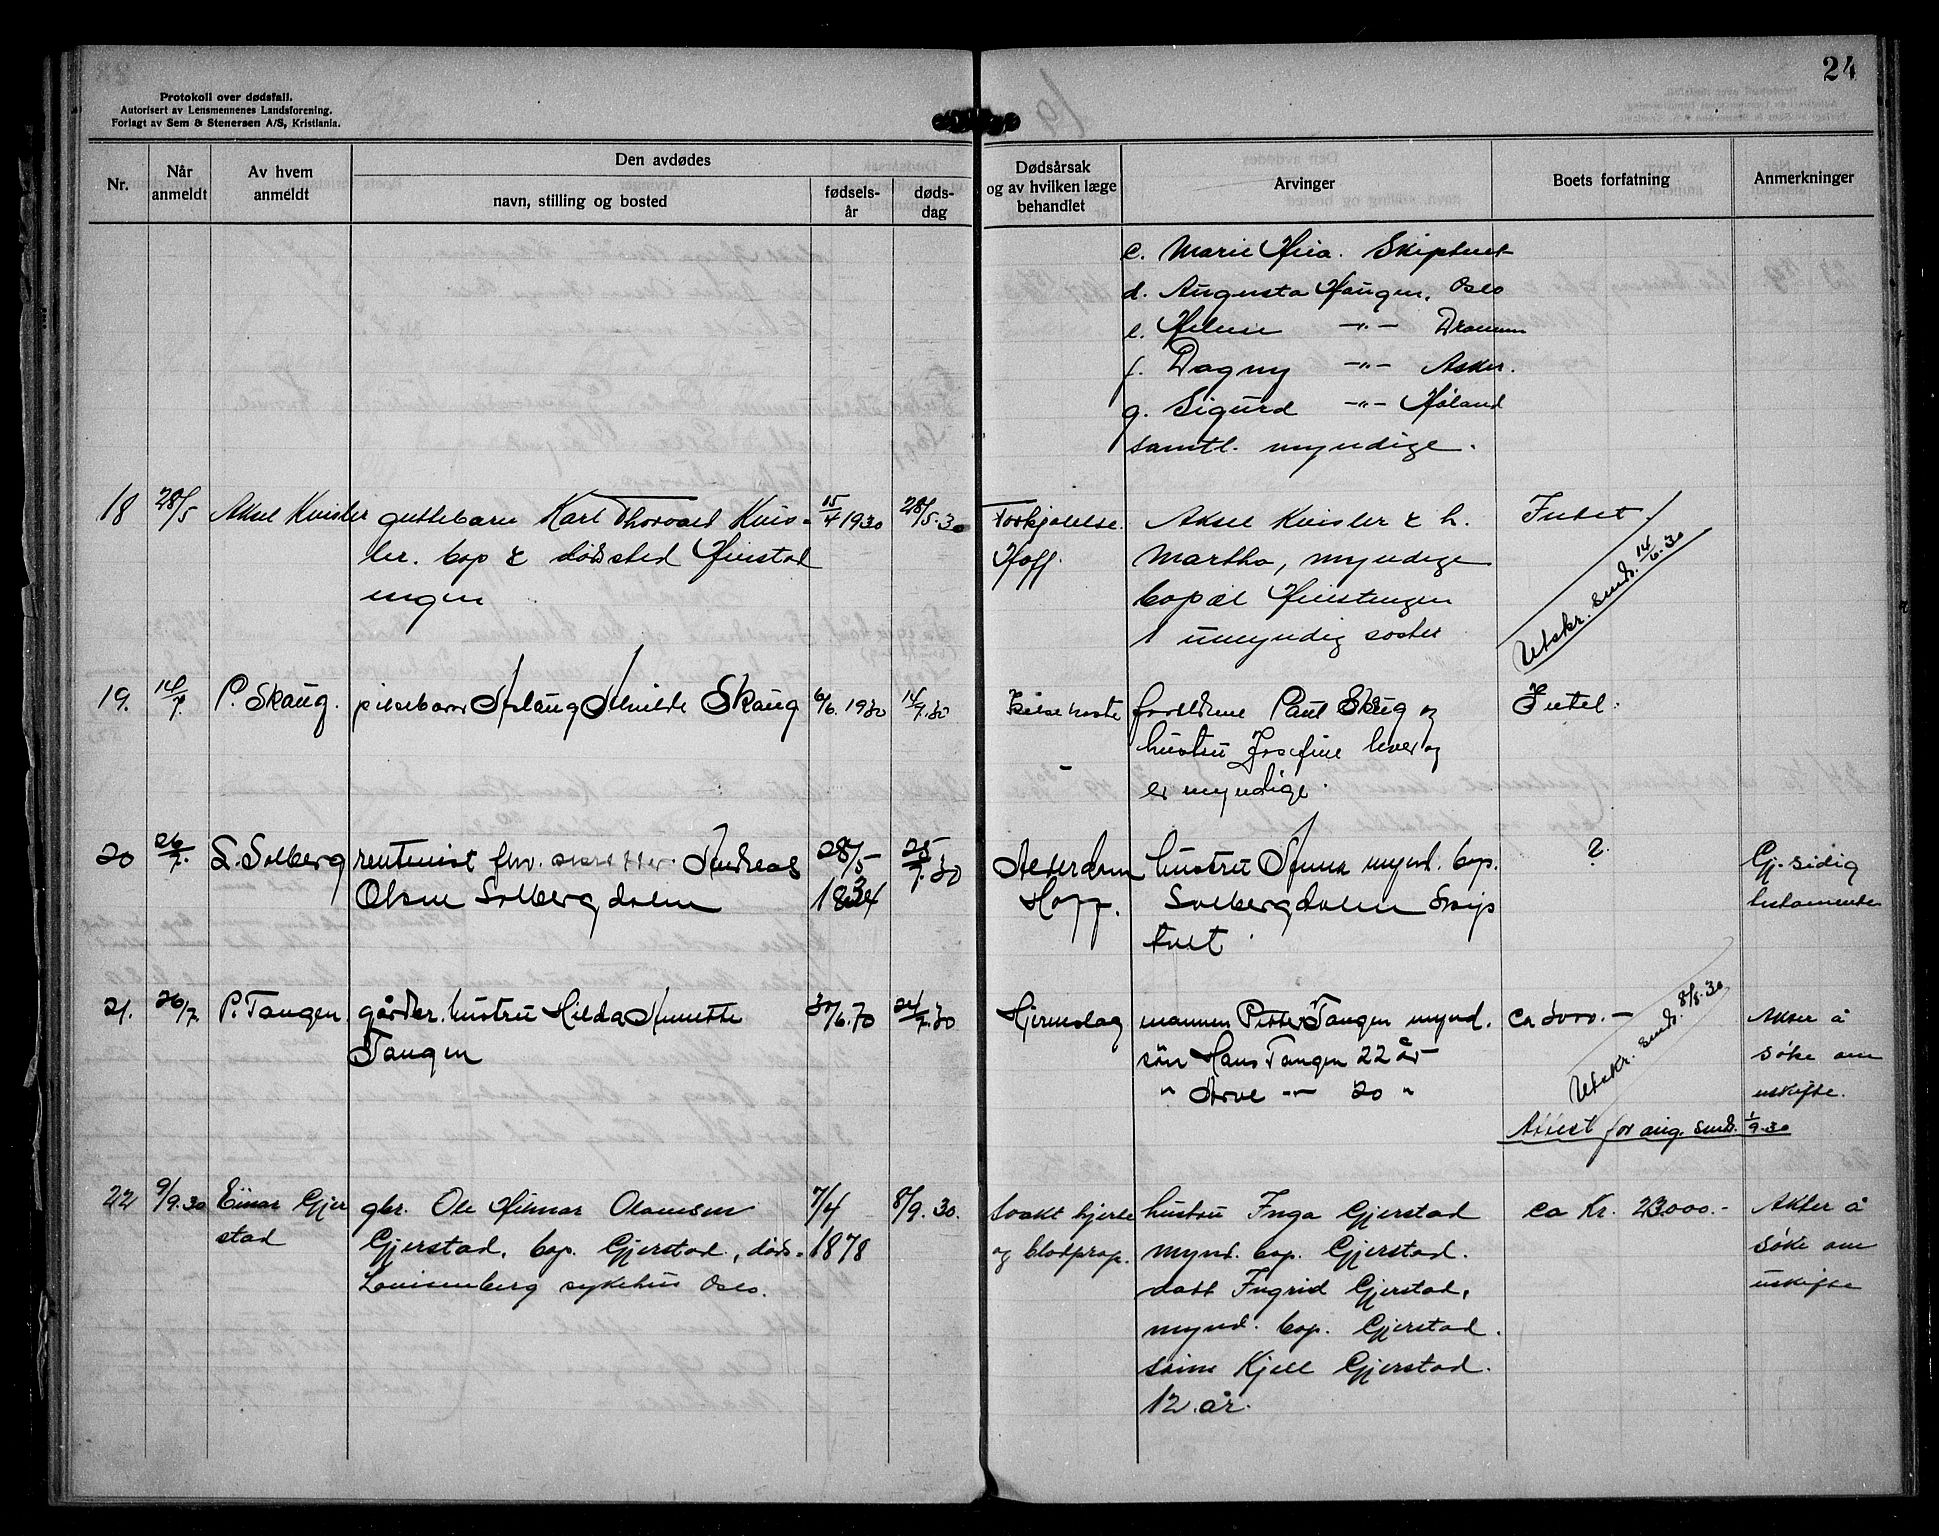 24
Protokoll over dødsfall.
Autorisert av Lensmennenes Landsforening.
Forlagt av Sem & Stenersen A/S, Kristiania.
Nr.
Når anmeldt
Av hvem anmeldt
Den avdødes
navn, stilling og bosted
fødsels-år
døds-dag
Dødsårsak og av hvilken læge behandlet
Arvinger
Boets forfatning
Anmerkninger
c. Marie Skiptvet
d. Augusta Haugen, Oslo
e. Helene -"- Drammen
f. Dagny -"- Asker.
g. Sigurd -"- Høland
samtl. myndige.
18
28/5
Aksel Kvisler
guttebarn Karl Thorvald Kvis-
ler. bop & dødsted
engen
15/4 1930
28/5.30
Forkjølelse.
Hoff.
Aksel Kvisler & h.
Martha, myndige
bopæl
1 umyndig søster
Intet.
Utskr. send. 14/6.30
19.
14/7.
P. Skaug.
pikebarn Aslaug Alvilde Skaug
6/6. 1930
14/7.30
Kikhoste
forældrene Paul Skaug og
hustru Josefine lever og
er myndige.
Intet.
20
26/7.
L. Solberg
rentenist fhv. Andreas
Olsen Solbergdalen
28/5
1834
25/7.30
Alderdom
Hoff.
hustru Anna mynd. bop.
Solbergdalen Skip
tvet.
?
Gj.sidig
testamente
21.
26/7.
P. Tangen.
gårdbr. hustru Hilda Annette
Tangen
30/6.70
24/7.30
Hjerneslag
mannen Petter Tangen mynd.
sön Hans Tangen 22 år
" Arve -"- 20 "
Utskr. send. 8/8.30
Attest for send. 1/9.30
Akter å
søke om
uskifte.
22
9/9.30
Einar Gjer
stad
gbr. Ole Hilmar Olausen
Gjerstad, bop. Gjerstad, døds-
Louisenberg sykehus Oslo.
7/4
1878
8/9.30.
Svakt hjerte
og blodprop.
hustru Inga Gjerstad
mynd. bop. Gjerstad.
datt Ingrid Gjerstad,
mynd. bop. Gjerstad.
sønn Kjell Gjerstad.
12 år.
ca Kr. 23000.-
Akter å
søke om
uskifte